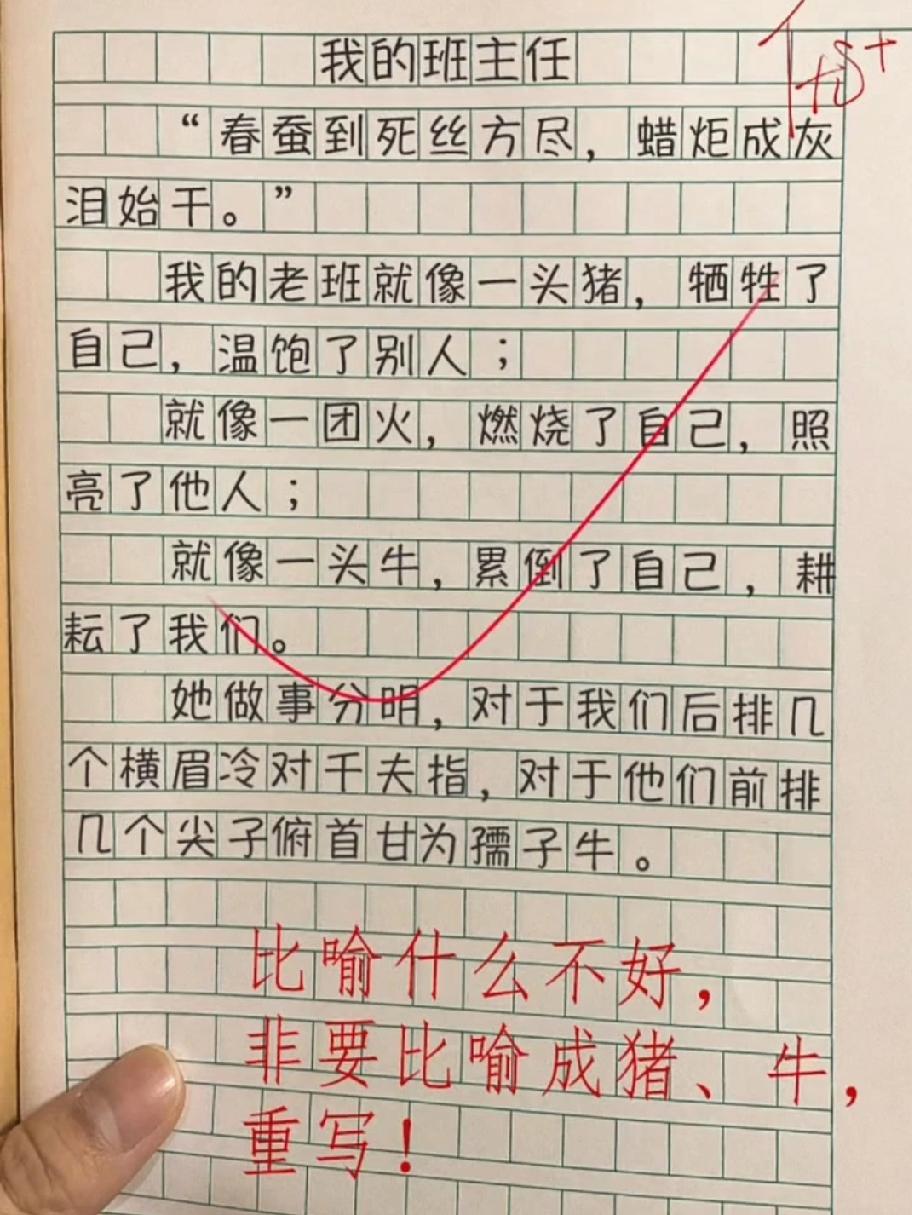 我的班主任
优+
“春蚕到死丝方尽，蜡炬成灰
泪始干。”
我的老班就像一头猪，牺牲了
自己，温饱了别人；
就像一团火，燃烧了自己，照
亮了他人；
就像一头牛，累倒了自己，耕
耘了我们。
她做事分明，对于我们后排几
个横眉冷对千夫指，对于他们前排
几个尖子俯首甘为孺子牛。
比喻什么不好，
非要比喻成猪、牛，
重写！